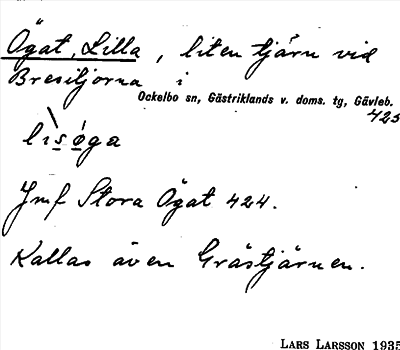 Ögat, Lilla, liten tjärn vid
Bresiljorna i
Ockelbo sn, Gästriklands v. doms. tg, Gävleb.
425
lısøga
Jmf Stora Ögat 424.
Kallas även Grästjärnen.
LARS LARSSON 1935